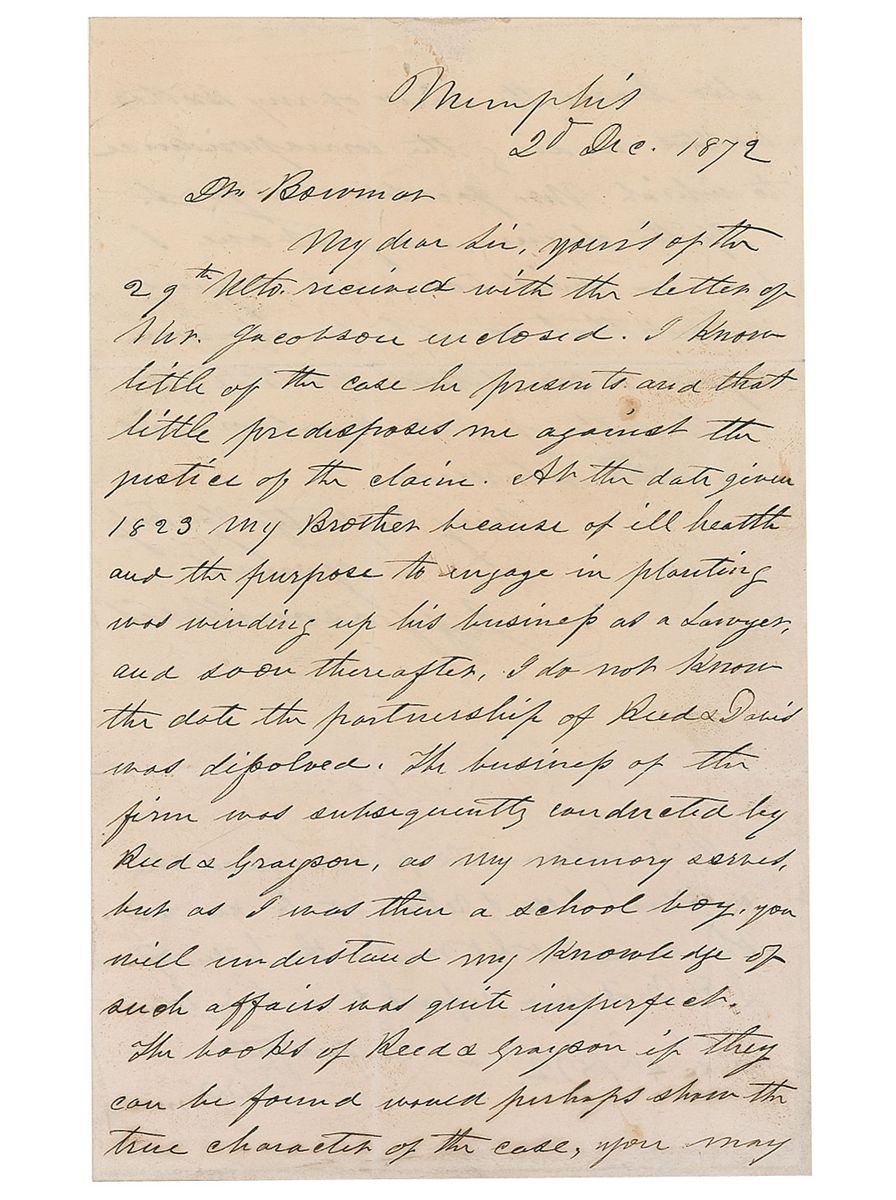 Memphis
2d Dec. 1872
Dr. Bowmar
My dear Sir, your's of the
29th Ulto. recieved with the letter of
Mr. Jacobson enclosed. I know
little of the case he presents and that
little predisposes me against the
justice of the claim. At the date given
1823 my Brother because of ill health
and the purpose to engage in planting
was winding up his business as a Lawyer,
and soon thereafter, I do not know
the date the partnership of Reed & Davis
was dissolved. The business of the
firm was subsequently conducted by
Reed & Grayson, as my memory serves,
but as I was then a school boy, you
will understand my knowledge of
such affairs was quite imperfect.
The books of Reed & Grayson if they
can be found would perhaps show the
true character of the case, you may